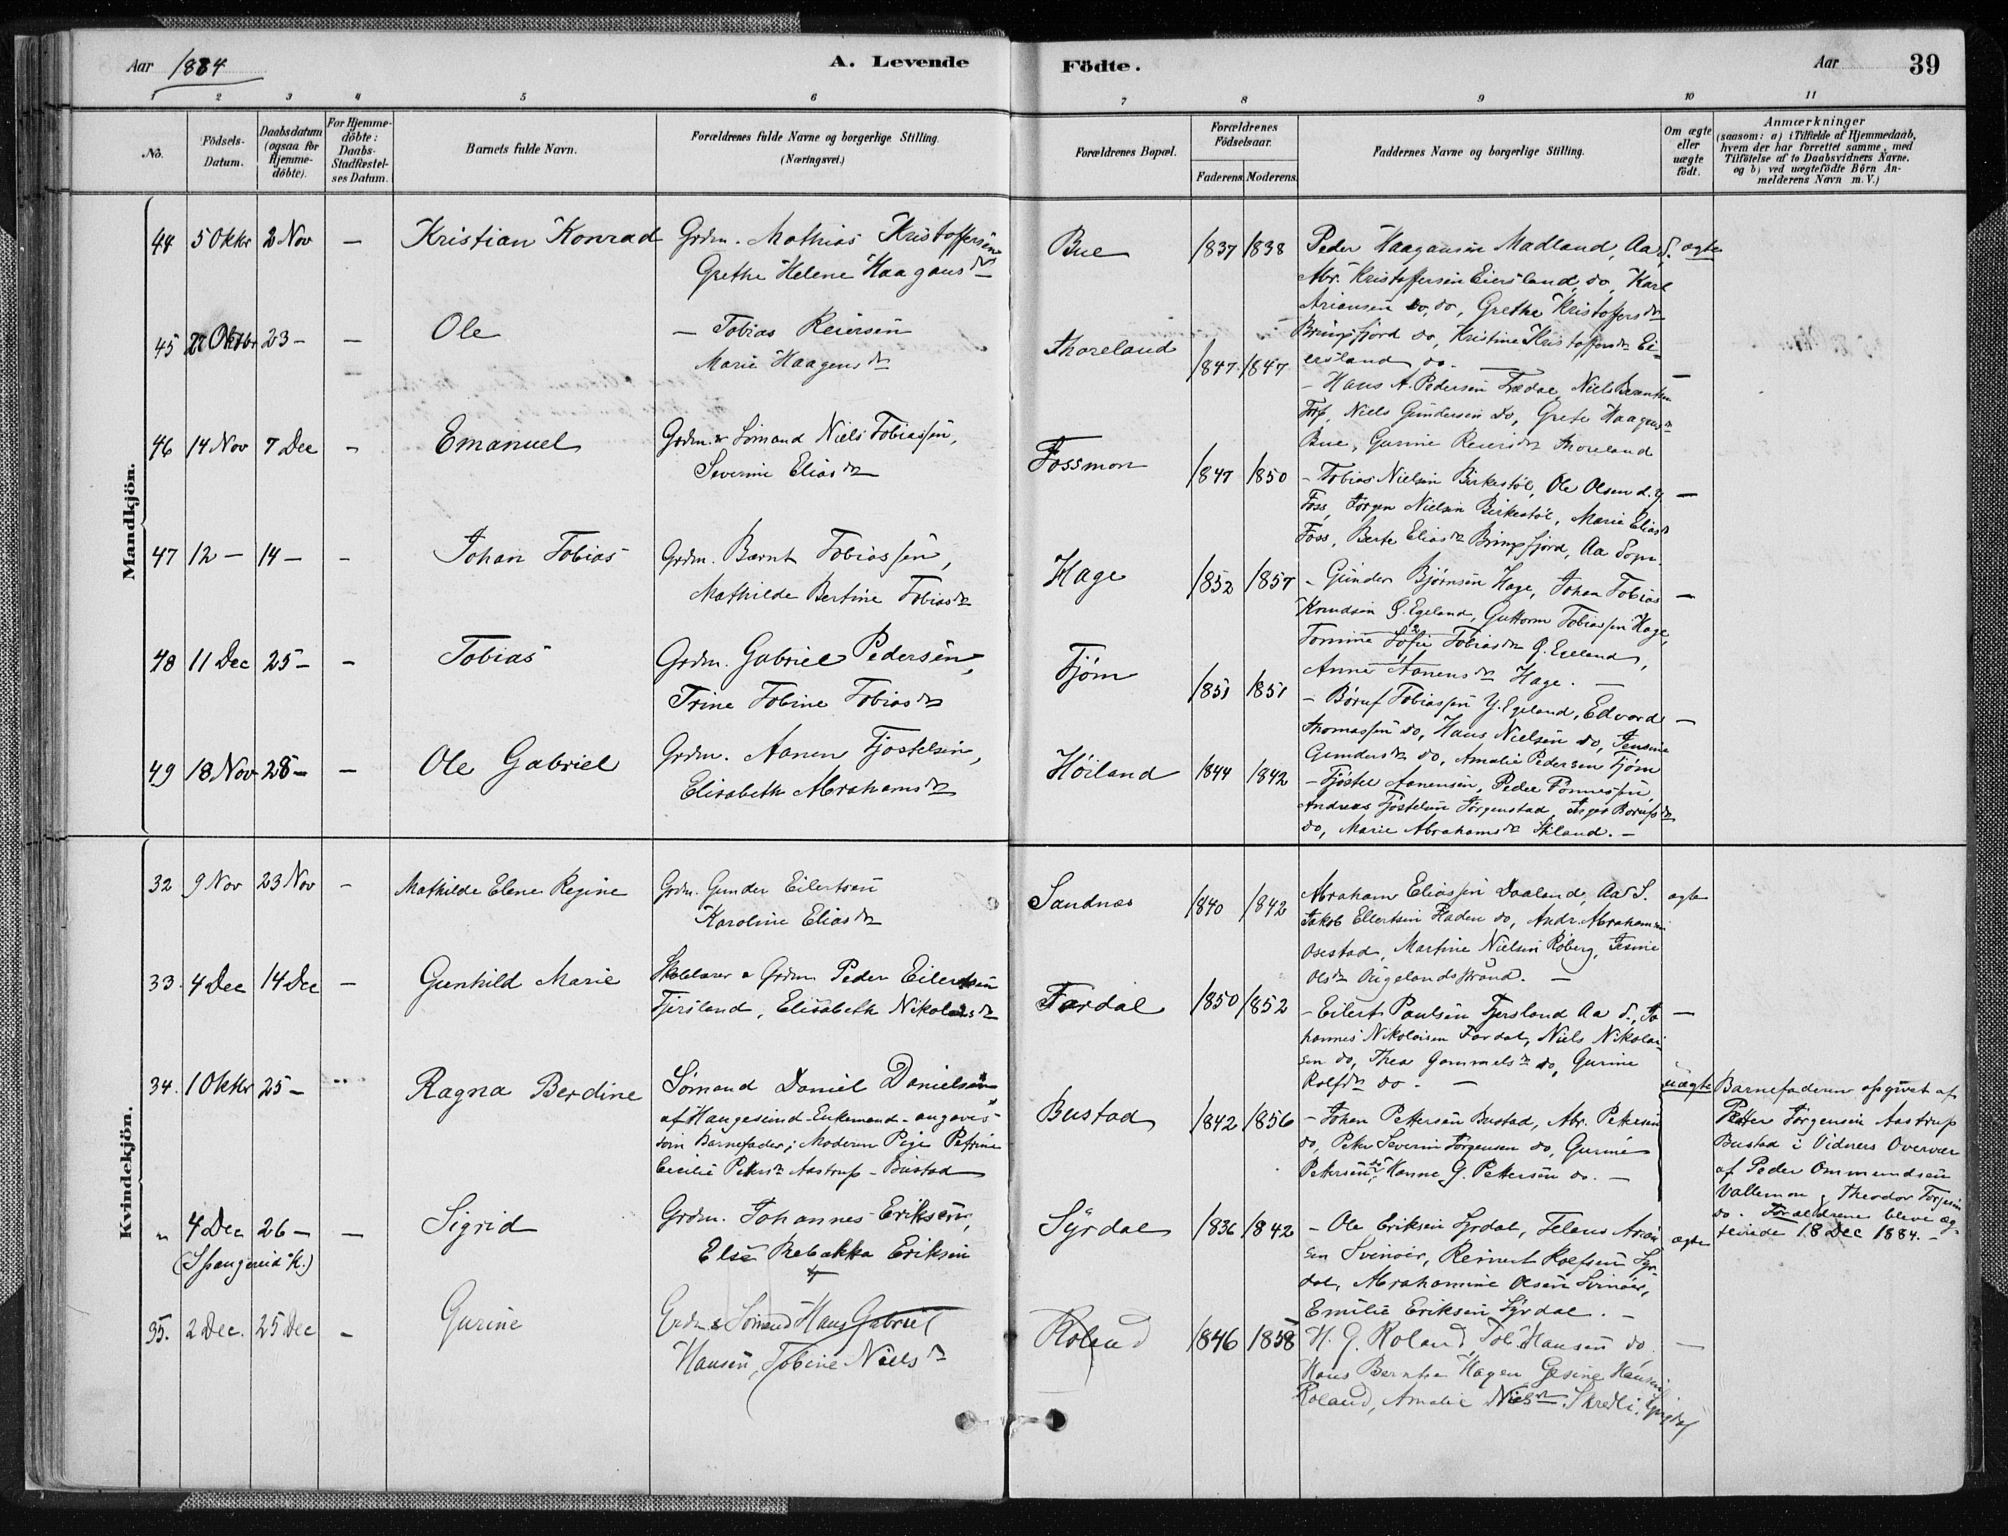 Aar 1884
A. Levende Födte.
Aar 39
1 2 3 4 5 6 7 8 9 10 11
No.
Födsels-Datum.
Daabsdatum (ogsaa for Hjemme-döbte).
For Hjemme-döbte: Daabs-Stadfæstel-ses Datum.
Barnets fulde Navn.
Forældrenes fulde Navne og borgerlige Stilling. (Næringsvei.)
Forældrenes Bopæl.
Forældrenes Födselsaar.
Faderens. Moderens.
Faddernes Navne og borgerlige Stilling.
Om ægte eller uægte födt.
Anmærkninger
(saasom: a) i Tilfælde af Hjemmedaab,
hvem der har forrettet samme, med
Tilföielse af to Daabsvidners Navne.
og b) ved uægtefödte Börn An-
melderens Navn m. V.)
Mandkjön.
44 5 Oktbr 2 Nov — Kristian Konrad
Grdm. Mathias Kristoffersen
Grethe Helene Haagensdr
Bue 1837 1838
Peder Haagensen Madland, Aa S. ægte
Abr. Kristoffersen Eiersland, do, Karl
Ariansen do, do, Grethe Kristoffersdr
Bringsfjord do, Kristine Kristoffersdr Ei-
ersland do. —
45 22 Oktbr 23 — — Ole
— Tobias Reiersen
Marie Haagensdr
Thoreland 1847 1847
— Hans A. Pedersen Fædal, Niels Berntsen
Torp, Niels Gundersen do, Grete Haagensdr
Bue, Gurine Reiersdr Thoreland
46 14 Nov 7 Dec — Emanuel
Grdm. & Sömand Niels Tobiassen,
Severine Eliasdr
Fossmon 1847 1850
— Tobias Nielsen Birkestöl, Ole Olsen d.y. —
Foss, Jörgen Nielsen Birkestöl, Marie Eliasdr
Foss, Berte Eliasdr Bringsfjord, Aa Sogn.
47 12 — 14 — — Johan Tobias
Grdm. Bærnt Tobiassen,
Mathilde Bertine Tobiasdr
Hage 1852 1857
— Gunder Bjørnsen Hage, Johan Tobias —
Knudsen Ö. Egeland, Guttorm Tobiassen Hage,
Tomine Sofie Tobiasdr Ö. Egeland,
Anne Aanensdr Hage. —
48 11 Dec 25 — — Tobias
Grdm. Gabriel Pedersen,
Trine Tobine Tobiasdr
Tjøm 1851 1851
— Böruf Tobiassen Y. Egeland, Edvard —
Thomassen do, Hans Nielsen do, Jensine
Gundersdr do, Amalie Pedersen Tjøm
49 18 Nov 28 — — Ole Gabriel
Grdm. Aanen Tjöstelsen,
Elisabeth Abrahamsdr
Höiland 1844 1842
— Tjöstel Aanensen, Peder Tönnessen,
Andreas Tjöstelsen Jörgenstad, Inger Börufsdr
do, Marie Abrahamsdr Skiland. —
Kvindekjön.
32 9 Nov 23 Nov — Mathilde Elene Regine
Grdm. Gunder Eilertsen
Karoline Eliasdr
Sandnes 1840 1842
Abraham Eliassen Daaland, Aa S. ægte
Jakob Ellertsen Haden do, Andr. Abrahamsen
Osestad, Martine Nielsen Röberg, Jesine
Olsdr Vigelandsstrand. —
33. 4 Dec 14 Dec — Gunhild Marie
Skolelærer & Grdm Peder Eilertsen
Fjersland, Elisabeth Nikolaisdr
Fardal 1850 1852
— Eilert Paulsen Fjersland Aa S., Jo- —
hannes Nikolaisen Fardal, Niels Nikolai-
sen do, Thea Gammelsdr do, Gurine
Rolfsdr do. —
34. 1 Oktbr 25 — Ragna Berdine
Sömand Daniel Danielsen
af Haugesund - Enkemand - angaves
som Barnefader; Moderen Pige Petrine
Cecilie Petersdr Aastrup - Bustad
Bustad 1842 1856
— Johan Pettersen Bustad, Abr. Pettersen
do, Peter Severin Jörgensen do, Gurine
Pettersen do, Hanne G. Pettersen do. —
uægte
Barnefaderen opgivet af
Petter Jörgensen Aastrup
Bustad i Vidners Overvær
af Peder Ommundsen
Vallemon & Theodor Torjesen
do. Forældrene bleve æg-
teviede 18 Dec 1884. —
" 4 Dec 26 — — Sigrid
(Spangereid K.)
Grdm. Johannes Eriksen,
Else Rebekka Eriksen
Syrdal 1836 1842
— Ole Eriksen Syrdal, Telens Arian- ægte
sen Svinöer, Reinert Rolfsen Syr-
dal, Abrahamine Olsen Svinöer,
Emilie Eriksen Syrdal. —
35. 2 Dec. 25 Dec — Gurine
Grdm & Sömand Hans Gabriel
Hansen, Tobine Nielsdr
Roland 1846 1858
H. G. Roland, Tob. Hansen do. —
Hans Berntsen Hagen Gesine Hansen
Roland, Amalie Nielsdr. Skredli.